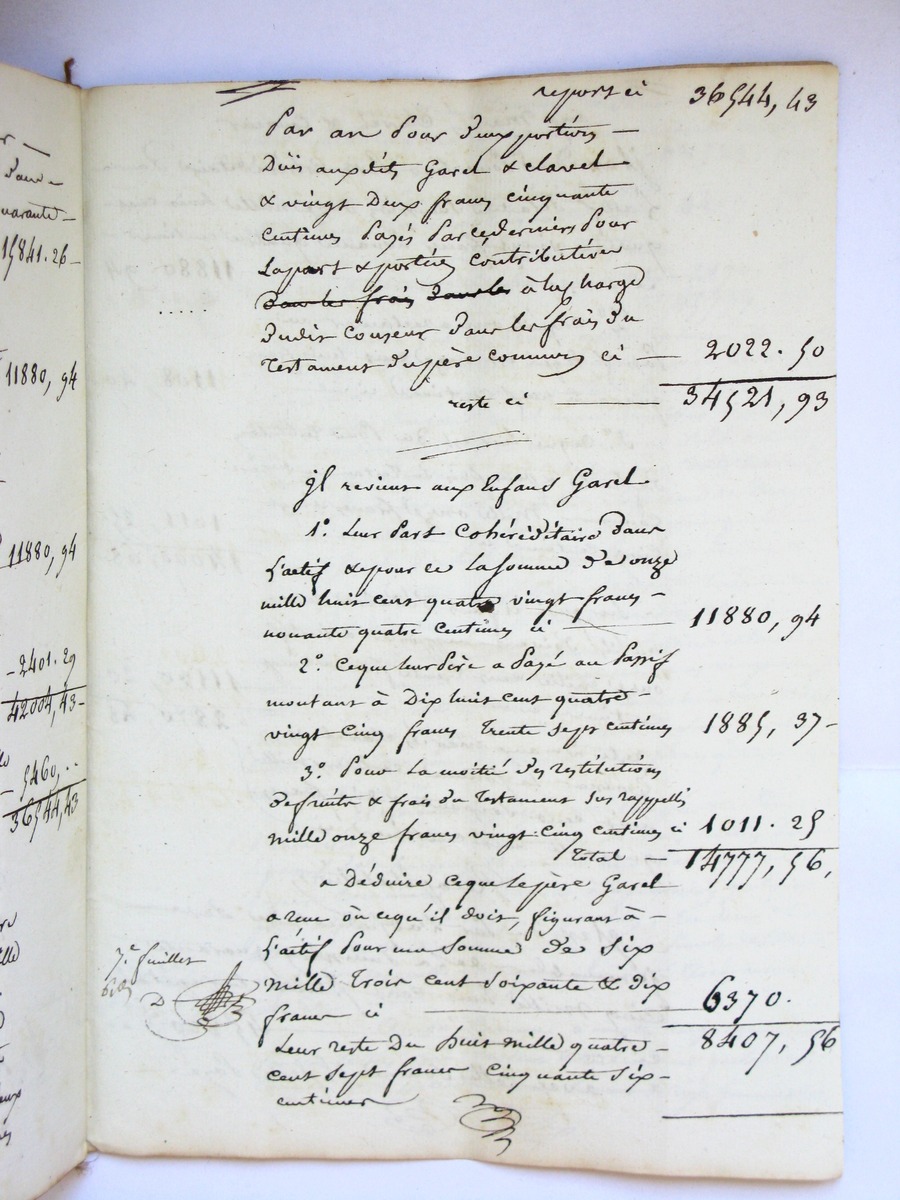 r —
d'une
quarante —
15841.26 —
11880, 94
11880, 94
- 2401.29
42004, 43 -
5460, ..
36544, 43
report ci 36544, 43
Par an Pour deux portions —
Dûs auxdits Garel & clavel
& vingt Deux francs cinquante
centimes Payés Par ce dernier Pour
La part & portion contributive
Dans les frais dans les à la charge
dudit Couseur dans les frais du
Testament du père commun ci — 2022.50
reste ci — 34521, 93
Il revient aux Enfans Garel
1°. Leur Part Cohéréditaire Dans
L'actif & pour ce la somme de onze
mille huit cent quatre vingt francs —
nonante quatre centimes ci — 11880, 94
2°. Ce que leur Père a Payé au Passif
montant à Dix huit cent quatre —
vingt Cinq francs Trente sept centimes 1885, 37 -
3°. Pour La moitié des restitutions
de fruits & frais du Testament sus rappellés
mille onze francs vingt-cinq centimes ci 1011.25
Total — 14777, 56,
a Déduire ce que le père Garel
a reçu ou ce qu'il doit, figurant à —
L'actif Pour une somme de six
mille Trois cent soixante & dix
francs ci — 6370.
8407, 56
Leur reste Du huit mille quatre —
cent sept francs Cinquante six —
centimes
7e. feuillet
D